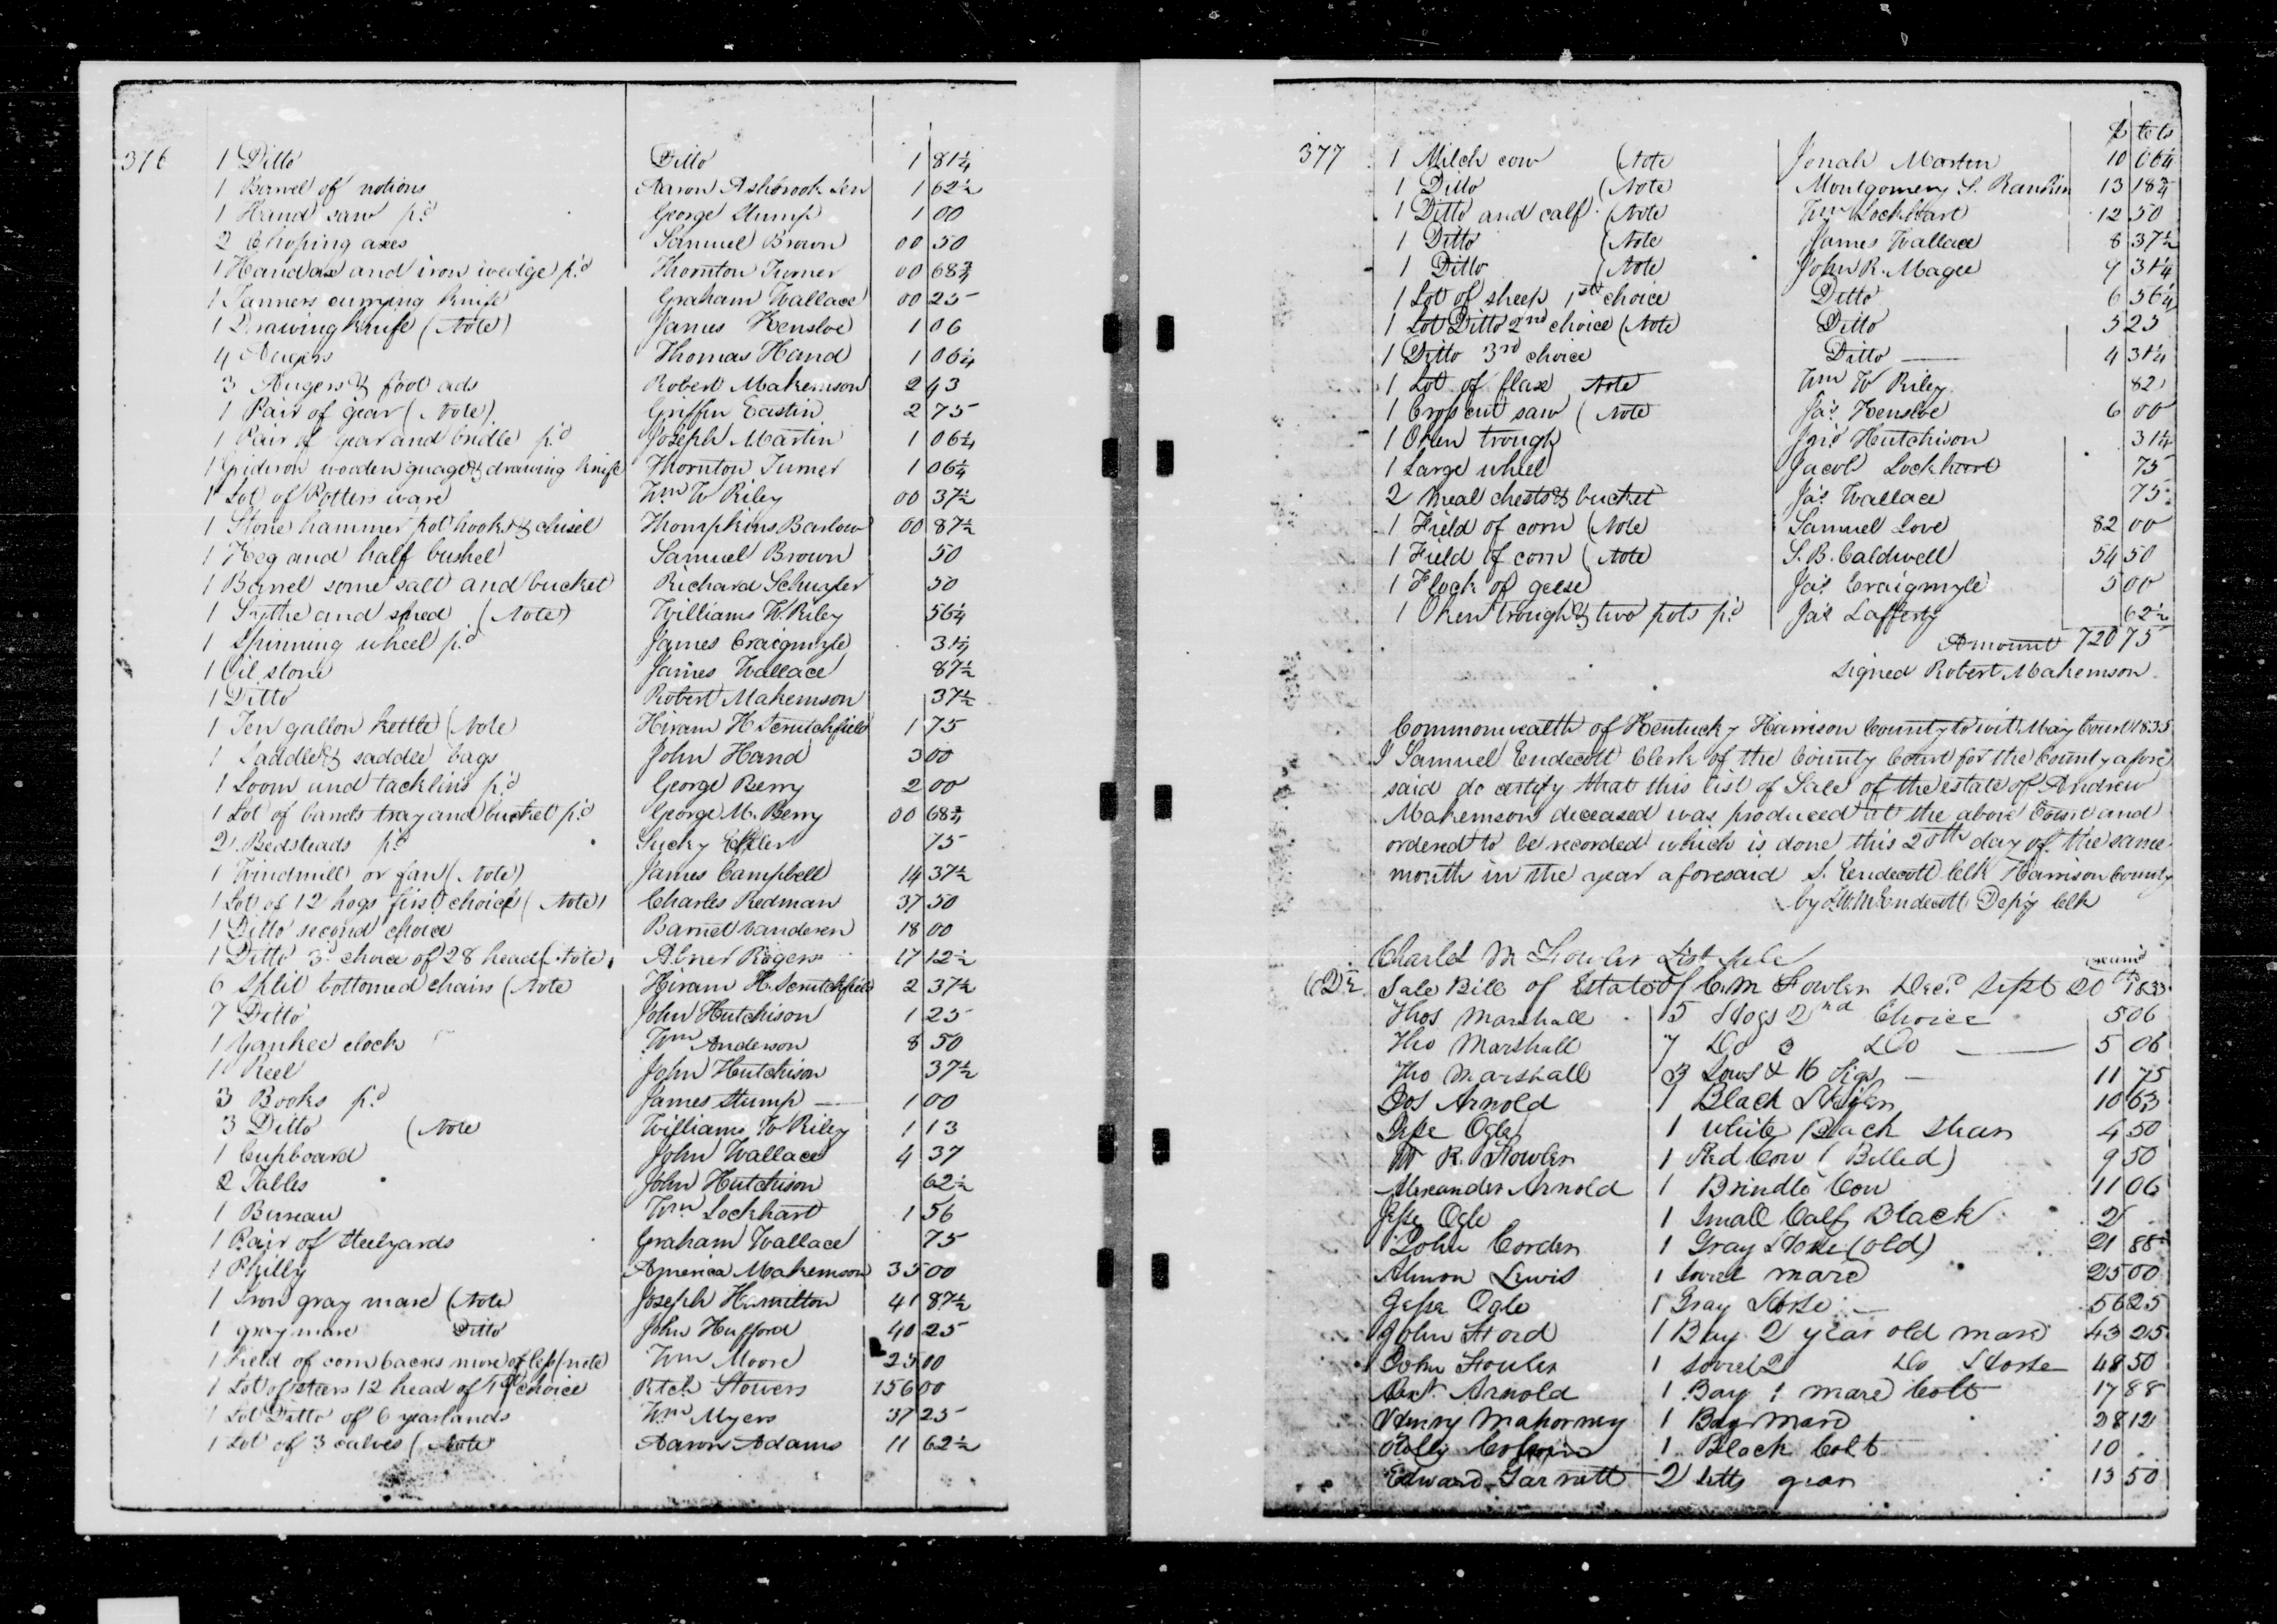 316 1 Ditto Ditto 1 81¼
1 Barrel of notions Aaron Ashbrook Sen 1 62½
1 Hand saw p.d George Stump 1 00
2 Choping axes Samuel Brown 00 50
1 Hand axe and iron wedge p.d Thornton Turner 00 68¾
1 Tanners currying knife Graham Wallace 00 25
1 Drawing knife (Note) James Kensloe 1 06
4 Augers Thomas Hand 1 06¼
3 Augers & foot ads Robert Makemson 2 43
1 Pair of gear (Note) Griffin Eastin 2 75
1 Pair of gear and bridle p.d Joseph Martin 1 06¼
1 Gridiron wooden guage & drawing knife Thornton Turner 1 06¼
1 Lot of Potters ware Wm W Riley 00 37½
1 Stone hammer pot hooks & chisel Thompkins Barlow 00 87½
1 Keg and half bushel Samuel Brown 50
1 Barrel some salt and bucket Richard Schuyler 50
1 Sythe and sned (Note) Williams W. Riley 56¼
1 Spinning wheel p.d James Craigmyle 31¼
1 Oil stone James Wallace 87½
1 Ditto Robert Makemson 37½
1 Ten gallon kettle (Note) Hiram H Scrutchfield 1 75
1 Saddle & saddle bags John Hand 3 00
1 Loom and tacklins p.d George Berry 2 00
1 Lot of bands tray and bucket p.d George M. Berry 00 68¾
2 Bedsteads p.d Sucky 75
1 Windmill or fan (Note) James Campbell 14 37½
1 Lot of 12 hogs first choice (Note) Charles Redman 37 50
1 Ditto second choice Barnet Vanderen 18 00
1 Ditto 3d choice of 28 head (Note) Abner Rogers 17 12½
6 Split bottomed chairs (Note Hiram H. Scrutchfield 2 37½
7 Ditto John Hutchison 1 25
1 Yankee clock Wm Anderson 8 50
1 Reel John Hutchison 37½
3 Books p.d James Stump 1 00
3 Ditto (Note Williams W Riley 1 13
1 Cupboard John Wallace 4 37
2 Tables John Hutchison 62½
1 Bureau Wm Lockhart 1 56
1 Pair of steelyards Graham Wallace 75
1 Philly America Makemson 35 00
1 Iron gray mare (Note Joseph Hamilton 41 87½
1 gray mare Ditto John Hufford 40 25
1 Field of corn 6 acres more or less (note) Wm Moore 25 10
1 Lot of steers 12 head of 1st choice Retch Stowers 156 00
1 Lot Ditto of 6 yearlands Wm Myers 37 25
1 Lot of 3 calves (Note Aaron Adams 11 62½
$ Cts
377 1 Milch cow (Note Jonah Martin 10 06¼
1 Ditto (Note Montgomery S. Rankin 13 18¾
1 Ditto and calf (Note Wm Lockhart 12 50
1 Ditto (Note James Wallace 8 37½
1 Ditto (Note John R. Magee 9 31¼
1 Lot of sheep 1st choice Ditto 6 56¼
1 Lot Ditto 2nd choice (Note Ditto 5 25
1 Ditto 3rd choice Ditto 4 31¼
1 Lot of flax Note Wm W Riley 82
1 Cross cut saw (Note Jas Kensloe 6 00
1 Oken trough Jno Hutchison 31¼
1 Large wheel Jacob Lockhart 75
2 Meal chests & bucket Jas Wallace 75
1 Field of corn (Note Samuel Love 82 00
1 Field of corn (Note S. B. Caldwell 54 50
1 Flock of geese Jas Craigmyle 5 00
1 Oken trough & two pots p.d Jas Lafferty 62½
Amount 720 75
Signed Robert Makemson
Commonwealth of Kentucky Harrison County to wit May Court 1835
I Samuel Endecott Clerk of the County Court for the County afore
said do certify that this list of Sale of the estate of Andrew
Makemson deceased was produced at the above Court and
ordered to be recorded which is done this 20th day of the same
month in the year aforesaid S. Endecott Clk Harrison County
by L. W. M. Endecott Depy Clk
Charles M Fowler List Sale
Sale Bill of Estate of C. M Fowler Decd Sept 20th 1833
Thos Marshall 15 Hogs 2nd Choice 5 06
Tho Marshall 7 Do 3 Do 5 06
Tho Marshall 3 Sows & 16 Pigs 11 75
Jos Arnold 1 Black Steer 10 63
Jesse Ogle 1 White Back Stear 4 50
W R. Fowler 1 Red Cow (Belled) 9 50
Alexander Arnold 1 Brindle Cow 11 06
Jesse Ogle 1 Small Calf Black 2
John Corden 1 Gray Horse (Old) 21 88
Almon Lewis 1 Sorrel mare 25 00
Jesse Ogle 1 Gray Horse 56 25
John Foard 1 Bay 2 year old mare 43 25
John Fowler 1 Sorrel 2 Do Horse 48 50
Arnold 1 Bay 1 mare Colt 17 88
Henry Mahorney 1 Bay Mare 28 12
1 Black Colt 10
Edward Garnett 2 setts gear 13 50